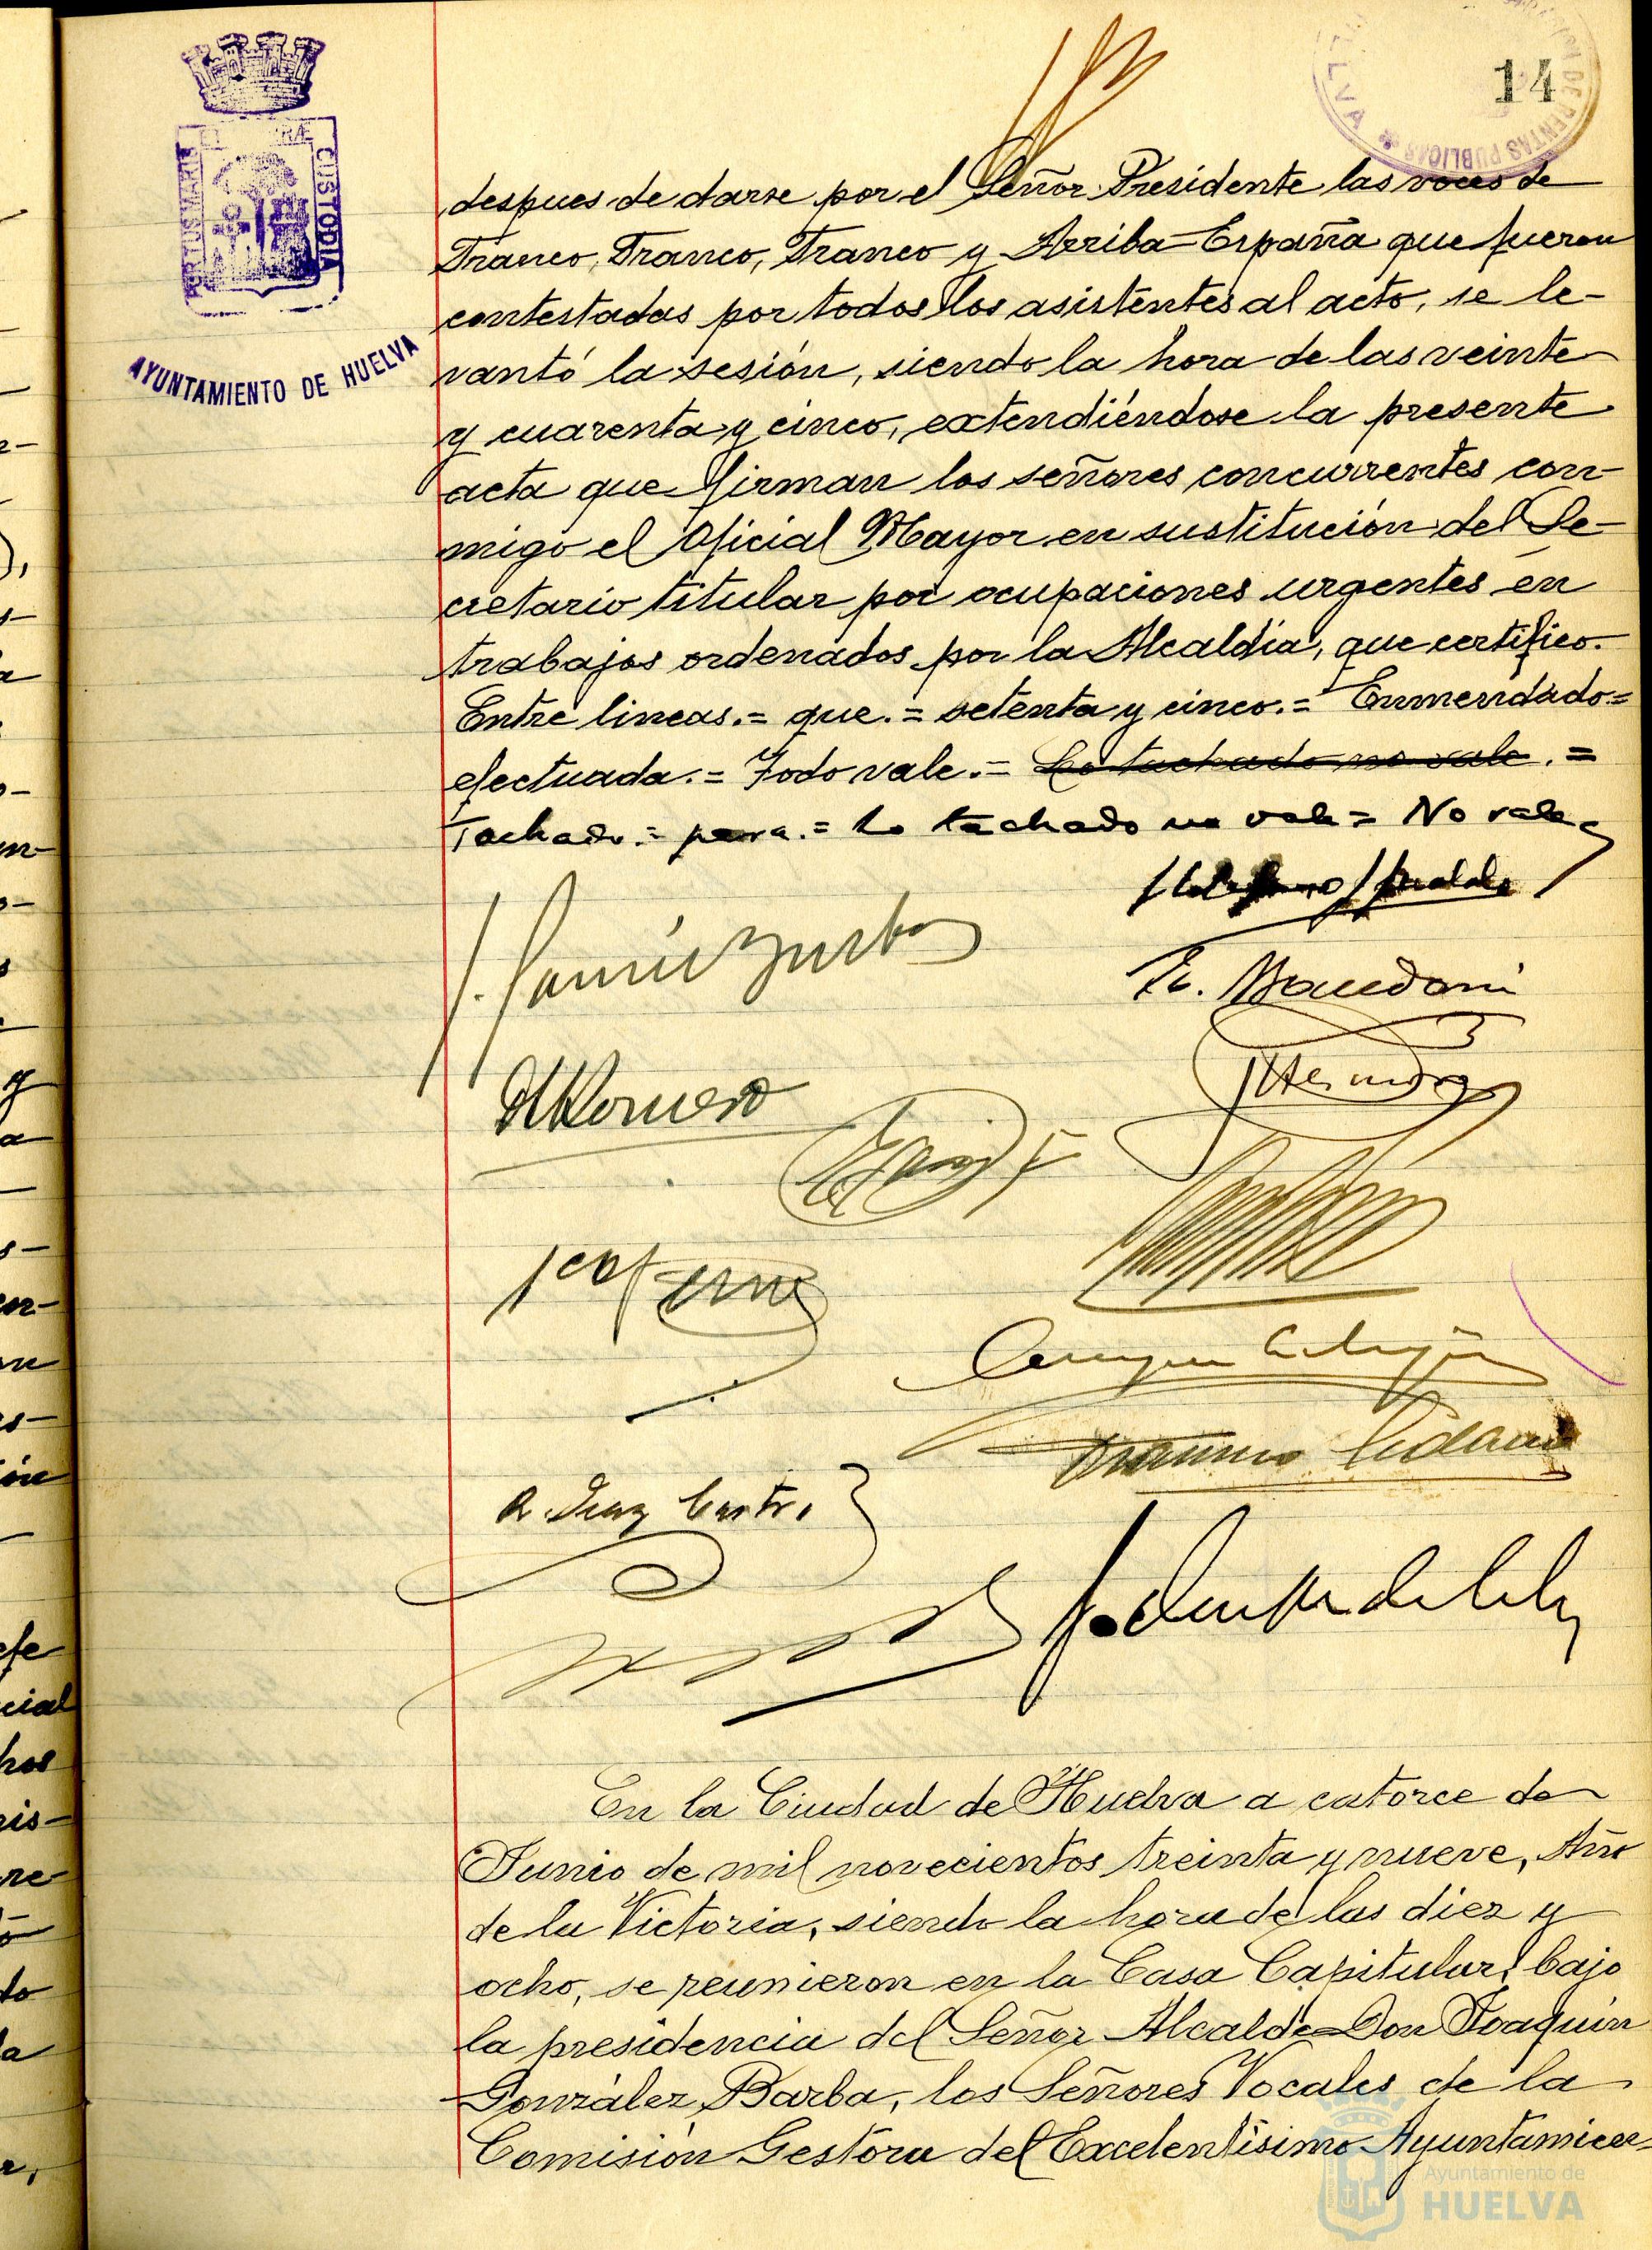 14
PORTUS MARIS
CUSTODIA
AYUNTAMIENTO DE HUELVA
despues de darse por el Señor Presidente las voces de
Franco, Franco, Franco y Arriba España que fueron
contestadas por todos los asistentes al acto, se le-
vantó la sesión, siendo la hora de las veinte
y cuarenta y cinco, extendiéndose la presente
acta que firman los señores concurrentes con-
migo el Oficial Mayor en sustitución del Se-
cretario titular por ocupaciones urgentes en
trabajos ordenados por la Alcaldía, que certifico.
Entre lineas.= que.= setenta y cinco.= Enmendado=
efectuada.= Todo vale.= Lo tachado no vale.=
Tachado.= para.= Lo tachado no vale= No vale
A. Romero
R. Díaz Castro
En la Ciudad de Huelva a catorce de
Junio de mil novecientos treinta y nueve, Año
de la Victoria, siendo la hora de las diez y
ocho, se reunieron en la Casa Capitular, bajo
la presidencia del Señor Alcalde Don Joaquín
González Barba, los Señores Vocales de la
Comisión Gestora del Excelentísimo Ayuntamien-
Ayuntamiento de
HUELVA